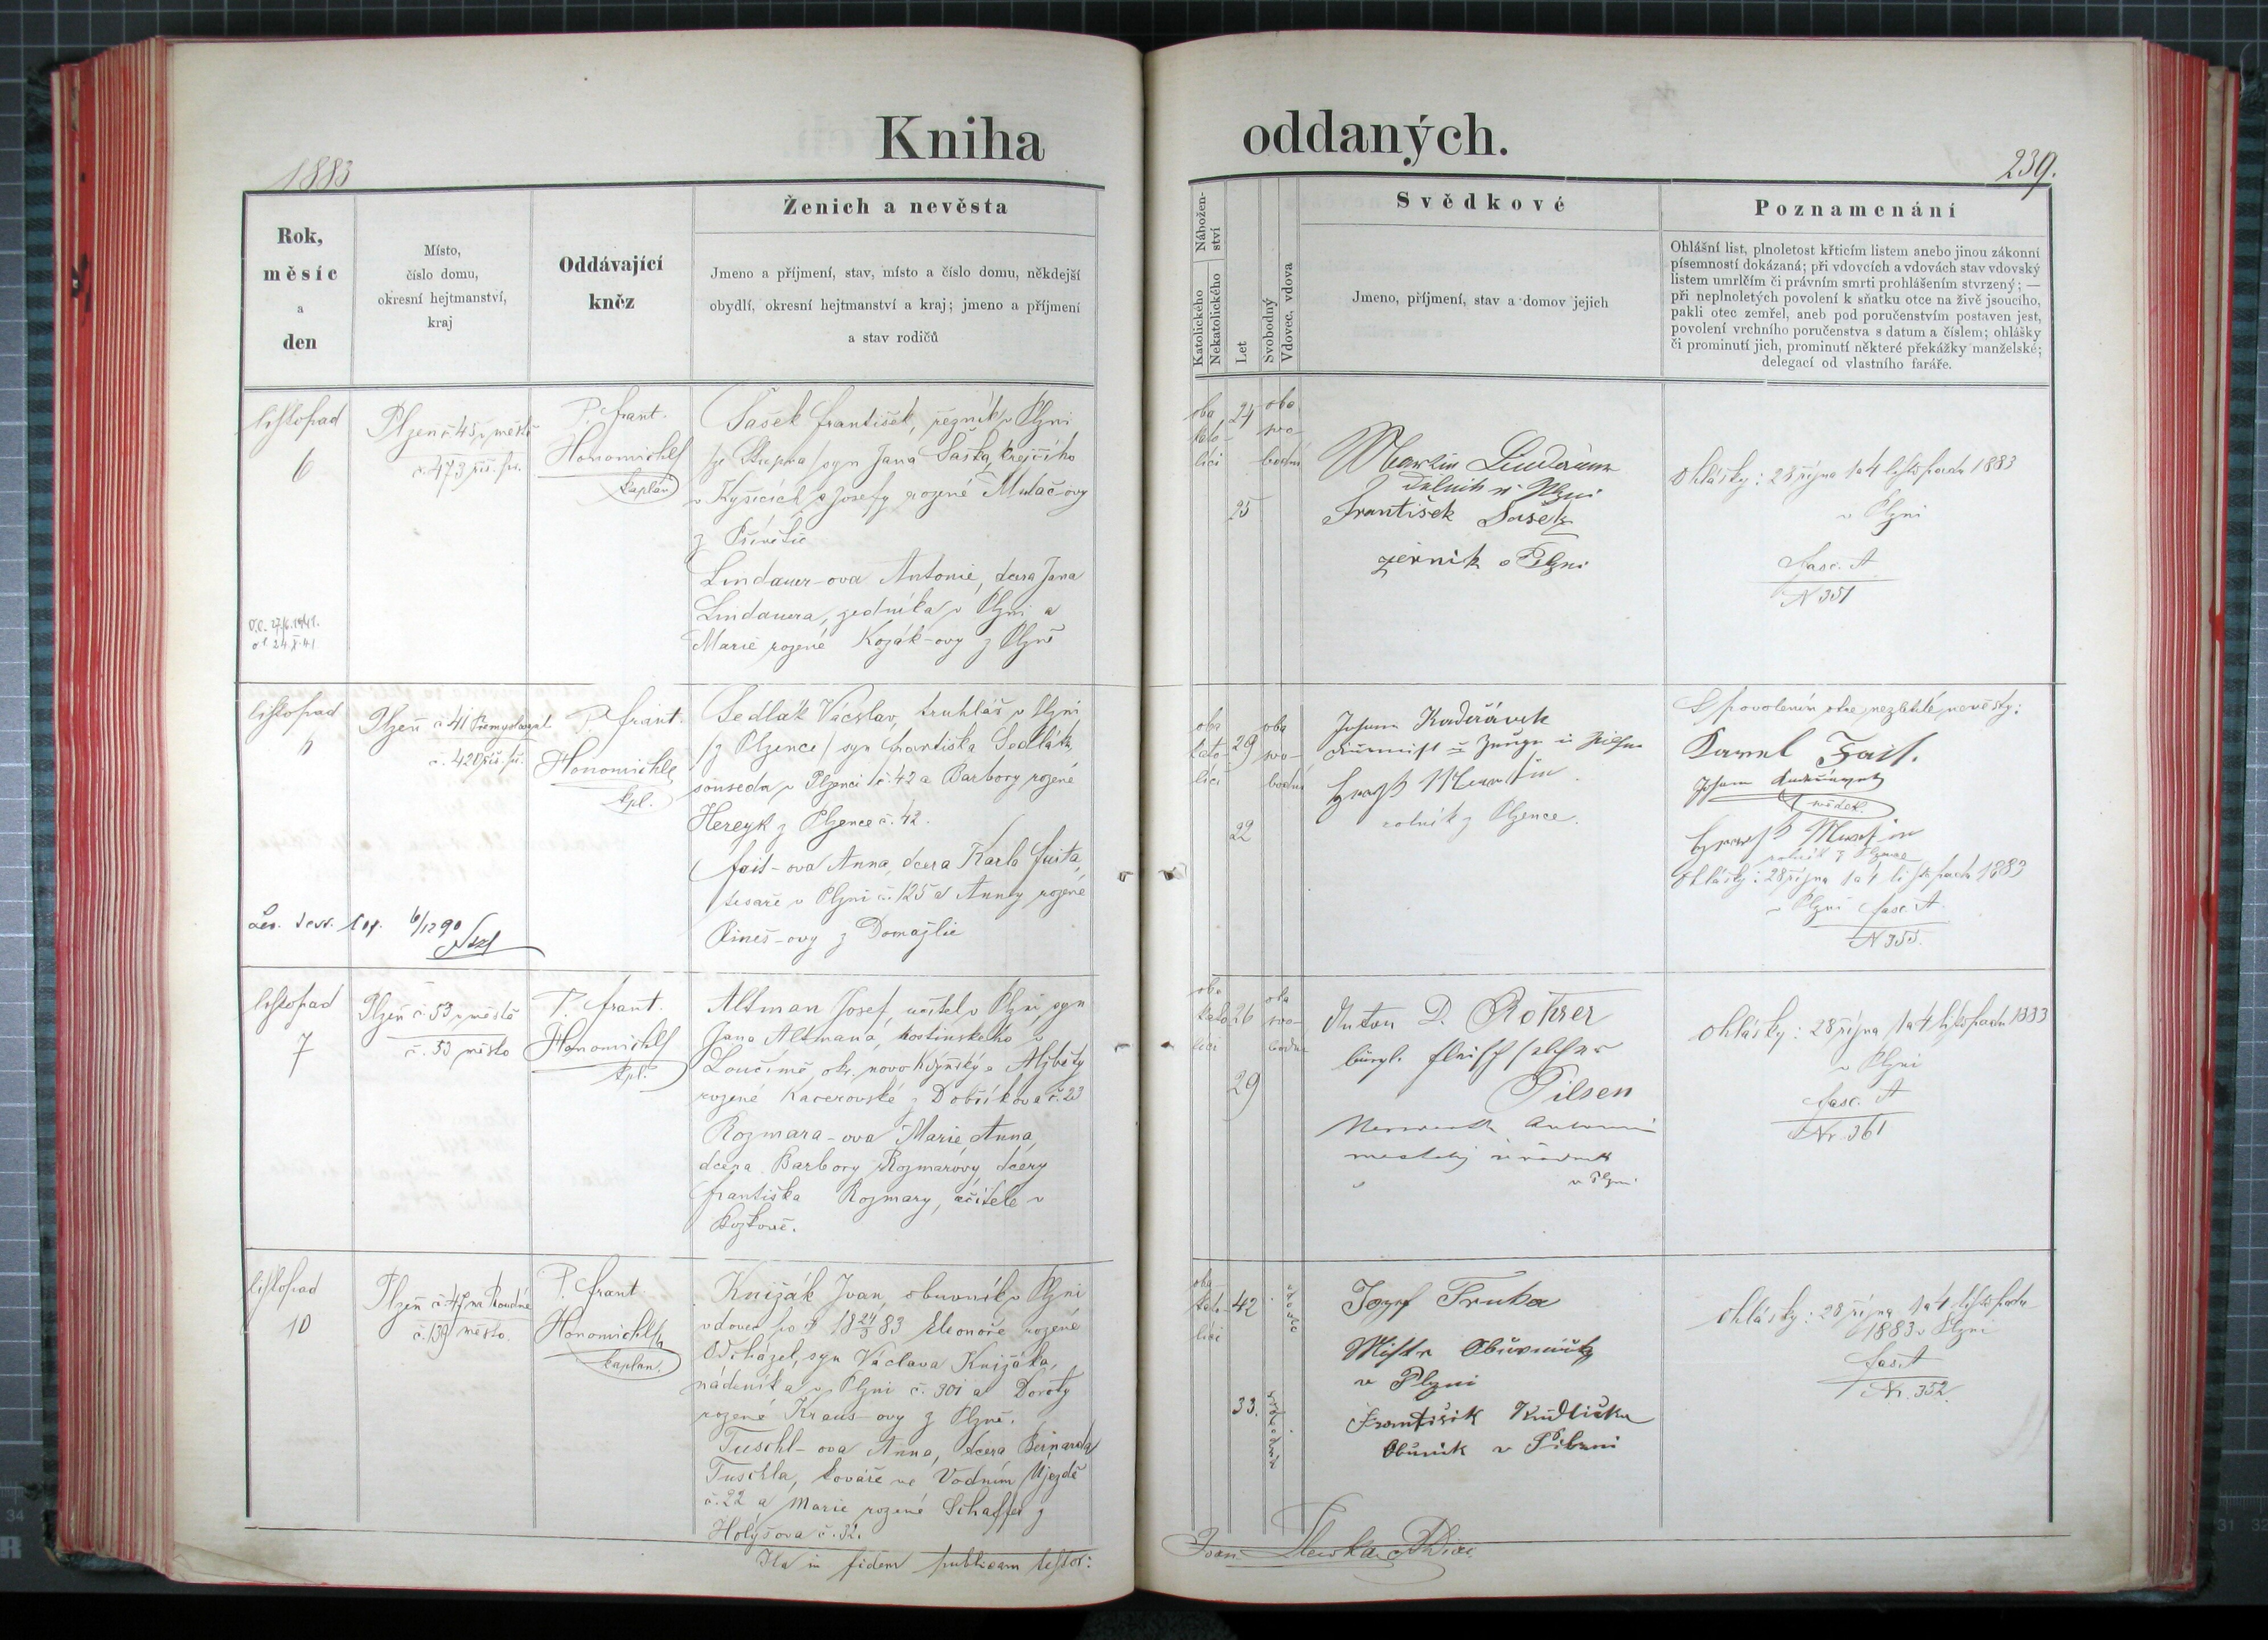 Kniha oddaných.
1883
239.
Rok,
měsíc
a
den
Místo,
číslo domu,
okresní hejtmanství,
kraj
Oddávající
kněz
Ženich a nevěsta
Jmeno a příjmení, stav, místo a číslo domu, někdejší
obydlí, okresní hejtmanství a kraj; jmeno a příjmení
a stav rodičů
Nábožen-
ství
Katolického
Nekatolického
Let
Svobodný
Vdovec, vdova
Svědkové
Jmeno, příjmení, stav a domov jejich
Poznamenání
Ohlášní list, plnoletost křticím listem anebo jinou zákonní
písemností dokázaná; při vdovcích a vdovách stav vdovský
listem umrlčím či právním smrti prohlášením stvrzený; —
při neplnoletých povolení k sňatku otce na živě jsoucího,
pakli otec zemřel, aneb pod poručenstvím postaven jest,
povolení vrchního poručenstva s datum a číslem; ohlášky
či prominutí jich, prominutí některé překážky manželské;
delegací od vlastního faráře.
listopad
6
Plzeň č 45 městě
č. 473 říš. př.
P. Frant.
Honomichl
kaplan
Šašek František, řezník v Plzni
syn Jana Šaška, krejčího
v Kyšicích a Josefy rozené Mulačovy
z
Lindauer-ova Antonie, dcera Jana
Lindauera, zedníka v Plzni a
Marie rozené Kozák-ovy z Plzně
oba
kato-
líci
24
25
oba
svo-
bodni
Martin
dělník v Plzni
František Šašek
v Plzni
Ohlášky: 28 října 1 a 4 listopadu 1883
v Plzni
Fasc. A
N 351
listopad
6
Plzeň č 41
č. 420 říš. př.
P. Frant.
Honomichl
kpl.
Sedlák Václav, truhlář v Plzni
/z Plzence/ syn Františka Sedláka,
souseda v Plzenci č. 42 a Barbory rozené
Hereyk z Plzence č. 42.
Fait-ova Anna, dcera Karla Faita,
tesaře v Plzni č. 125 a Anny rozené
z Domažlic
6/12 90
oba
kato-
líci
29
22
oba
svo-
bodni
Johann
Martin
rolník z Plzence.
S povolením otce nezletilé nevěsty:
Karel Fait.
Johann
svědek
Martin
rolník z Plzence
Ohlášky: 28 října 1 a 4 listopadu 1883
v Plzni Fasc. A.
N 355.
listopad
7
Plzeň č. 53 městě
č. 53 město
P. Frant.
Honomichl
kpl.
Altman Josef, učitel v Plzni, syn
Jana Altmana, hostinského v
Loučimě, okr. novo Kdýnský a Alžběty
rozené Kacerovské z Dobříkova č. 23
Rozmara-ova Marie Anna,
dcera Barbory Rozmarovy, dcery
Františka Rozmary, učitele v
oba
kato
líci
26
29
oba
svo-
bodni
Anton D. Röhrer
bürgl.
Pilsen
městský úředník
v Plzni
Ohlášky: 28 října, 1 a 4 listopadu 1883
v Plzni
Fasc. A
Nr. 361
listopad
10
Plzeň č. 47 na Roudné
č. 139 město
P. Frant.
Honomichl
kaplan.
Knižák Jvan, obuvník v Plzni
vdovec po 18 24/5 83 Eleonoře rozené
Odcházel, syn Václava Knižáka,
nádeníka v Plzni č. 301 a Doroty
rozené Kraus-ovy z Plzně.
Tuschl-ova Anna, dcera Bernarda
Tuschla, kováře ve Vodním Ujezdě
č. 22 a Marie rozené Schaffer z
Holyšova č. 32.
oba
kato-
líci
42
33.
vdovec
Jozef Truka
Mistr Obuvnický
v Plzni
František Kudlička
Obuvník v Pilzni
Ohlášky: 28 října 1 a 4 listopadu
1883 v Plzni
Fas. A
Nr. 352
Ita in fidem publicam testor: